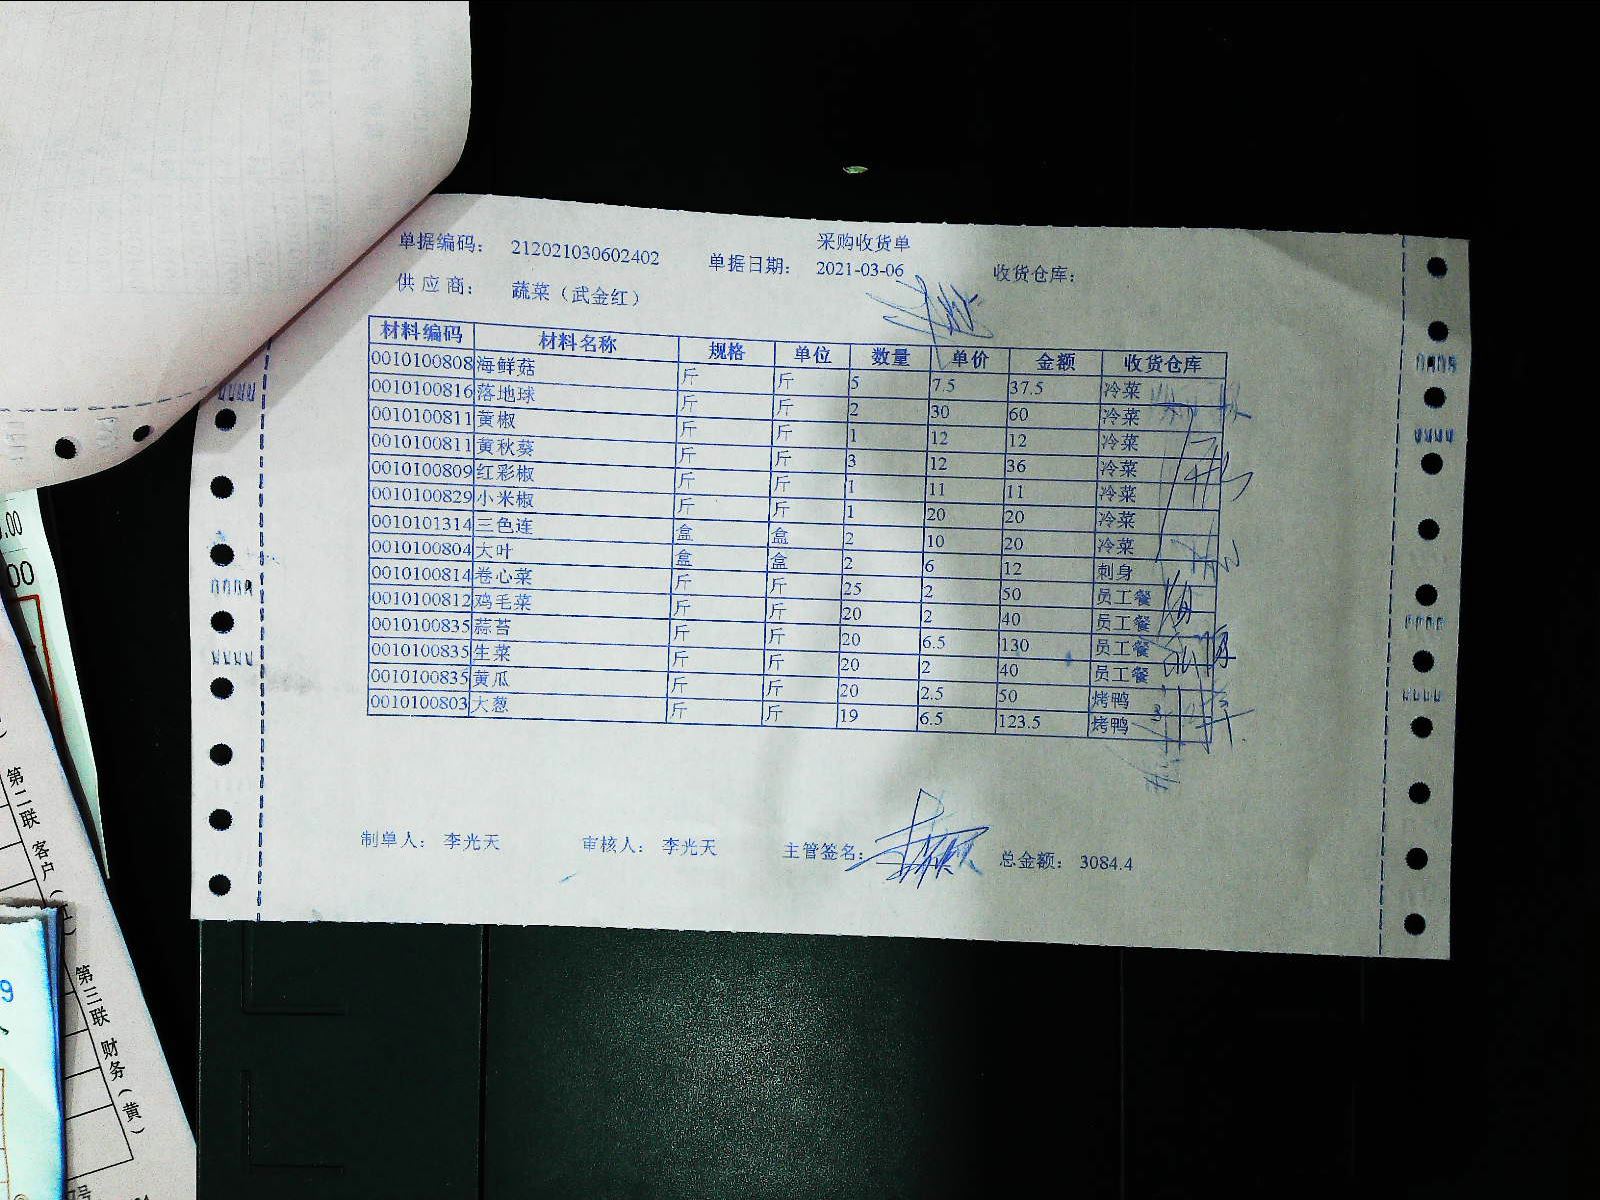 采购收货单
单据编码： 212021030602402 单据日期： 2021-03-06 收货仓库：
供 应 商： 蔬菜（武金红）
材料编码 材料名称 规格 单位 数量 单价 金额 收货仓库
0010100808 海鲜菇 斤 斤 5 7.5 37.5 冷菜
0010100816 落地球 斤 斤 2 30 60 冷菜
0010100811 黄椒 斤 斤 1 12 12 冷菜
0010100811 黄秋葵 斤 斤 3 12 36 冷菜
0010100809 红彩椒 斤 斤 1 11 11 冷菜
0010100829 小米椒 斤 斤 1 20 20 冷菜
0010101314 三色连 盒 盒 2 10 20 冷菜
0010100804 大叶 盒 盒 2 6 12 刺身
0010100814 卷心菜 斤 斤 25 2 50 员工餐
0010100812 鸡毛菜 斤 斤 20 2 40 员工餐
0010100835 蒜苔 斤 斤 20 6.5 130 员工餐
0010100835 生菜 斤 斤 20 2 40 员工餐
0010100835 黄瓜 斤 斤 20 2.5 50 烤鸭
0010100803 大葱 斤 斤 19 6.5 123.5 烤鸭
制单人： 李光天 审核人： 李光天 主管签名： 总金额： 3084.4
.00
00
第二联 客户（红）
第三联 财务（黄）
9